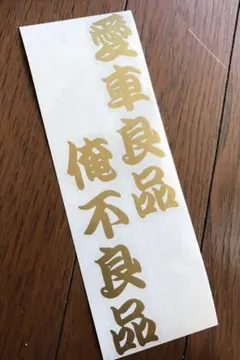 愛車良品
俺不良品